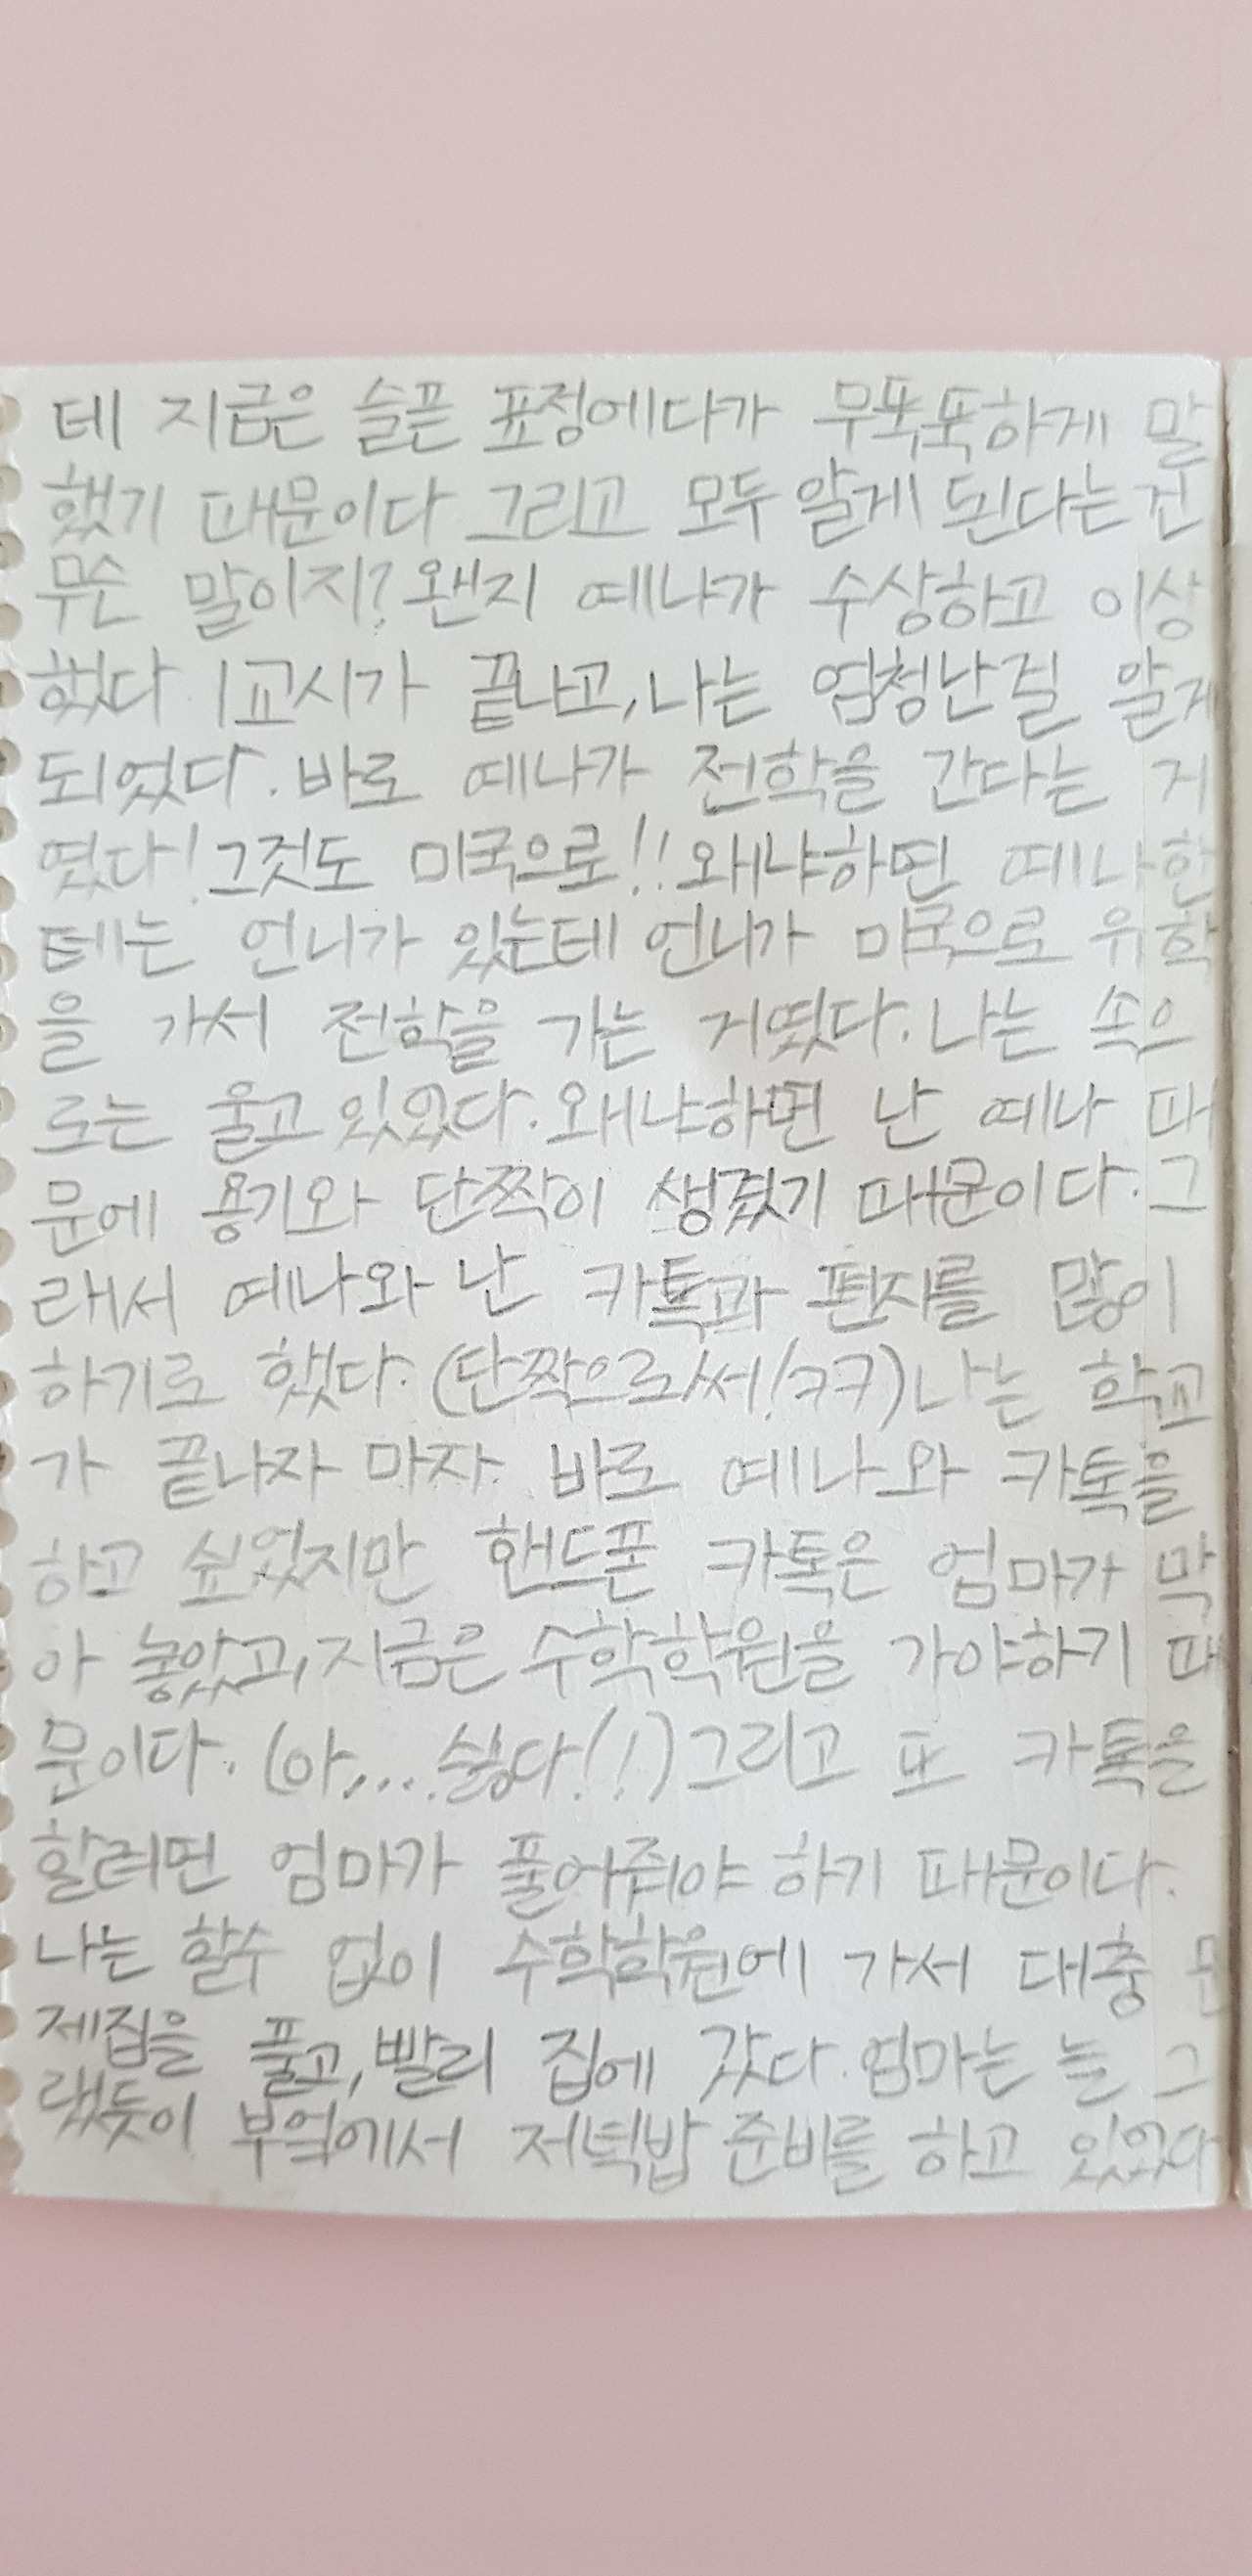 테 지금은 슬픈 표정에다가 무뚝뚝하게 말
했기 때문이다 그리고 모두 알게 된다는 건
무슨 말이지? 왠지 예나가 수상하고 이상
했다. 1교시가 끝나고, 나는 엄청난걸 알게
되었다. 바로 예나가 전학을 간다는 거
였다! 그것도 미국으로!! 왜냐하면 예나한
테는 언니가 있는데 언니가 미국으로 유학
을 가서 전학을 가는 거였다. 나는 속으
로는 울고 있었다. 왜냐하면 난 예나 때
문에 용기와 단짝이 생겼기 때문이다. 그
래서 예나와 난 카톡과 편지를 많이
하기로 했다. (단짝으로써! ㅋㅋ) 나는 학교
가 끝나자 마자 바로 예나와 카톡을
하고 싶었지만 핸드폰 카톡은 엄마가 막
아 놓았고, 지금은 수학학원을 가야하기 때
문이다. (아.... 싫다!!) 그리고 또 카톡을
할려면 엄마가 풀어줘야 하기 때문이다.
나는 할수 없이 수학학원에 가서 대충 문
제집을 풀고, 빨리 집에 갔다. 엄마는 늘 그
랬듯이 부엌에서 저녁밥 준비를 하고 있었다